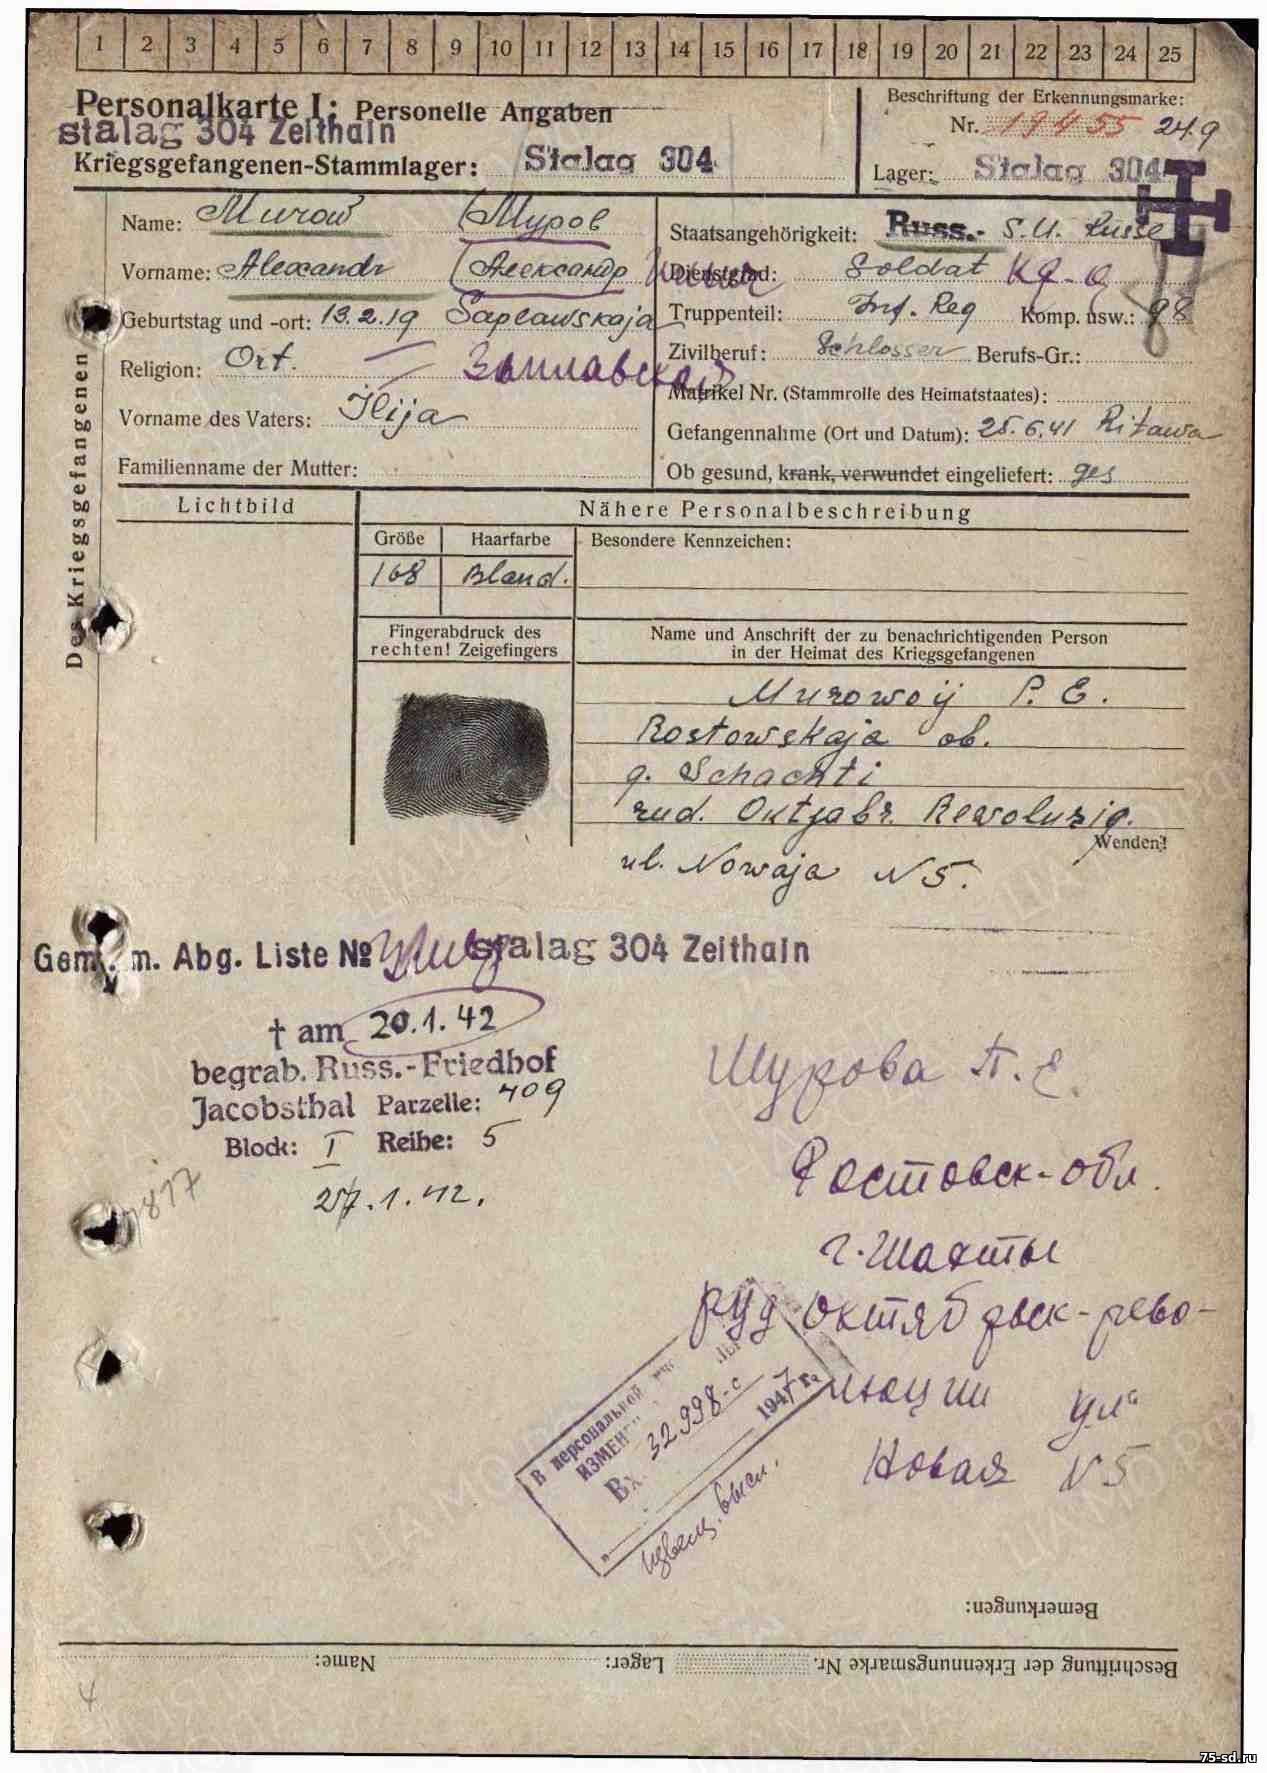 1 2 3 4 5 6 7 8 9 10 11 12 13 14 15 16 17 18 19 20 21 22 23 24 25
Personalkarte I: Personelle Angaben
Beschriftung der Erkennungsmarke:
stalag 304 Zeithain
Nr. 19455 249
Kriegsgefangenen-Stammlager: Stalag 304
Lager: Stalag 304
Des Kriegsgefangenen
Name: Murow (Муров
Staatsangehörigkeit: Russ.- S.U. Russe
Vorname: Alexandr (Александр Ильич
Dienstgrad: Soldat
Geburtstag und -ort: 13.2.19 Saplawskaja
Truppenteil: Inf. Reg Komp. usw.: 98
Religion: Ort. Заплавская
Zivilberuf: Schlosser Berufs-Gr.:
Matrikel Nr. (Stammrolle des Heimatstaates):
Vorname des Vaters: Ilija
Gefangennahme (Ort und Datum): 25.6.41 Ritawa
Familienname der Mutter:
Ob gesund, krank, verwundet eingeliefert: ges
Lichtbild
Nähere Personalbeschreibung
Größe Haarfarbe Besondere Kennzeichen:
168 Bland.
Fingerabdruck des
rechten! Zeigefingers
Name und Anschrift der zu benachrichtigenden Person
in der Heimat des Kriegsgefangenen
Murowoij P. E.
Rostowskaja ob.
g. Schachti
rud. Oktjabr. Rewoluzig.
Wenden!
ul. Nowaja N 5.
Gem. m. Abg. Liste № stalag 304 Zeithain
† am 20.1.42
begrab. Russ.-Friedhof
Jacobsthal Parzelle: 409
Block: I Reihe: 5
27.1.42.
Шурова П. Е.
Ростовск-обл.
г. Шахты
руд Октябрьск-рево-
люции ул
Новая N 5
В персональной
ИЗМЕН
Вх. 32998-с
1947 г.
извещ. высл.
Bemerkungen:
Beschriftung der Erkennungsmarke Nr. Lager: Name:
4
75-sd.ru